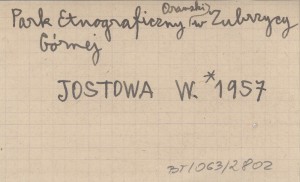 Park Etnograficzny Orawski w Zubrzycy
Górnej
JOSTOWA W. *1957
BT/063/2802